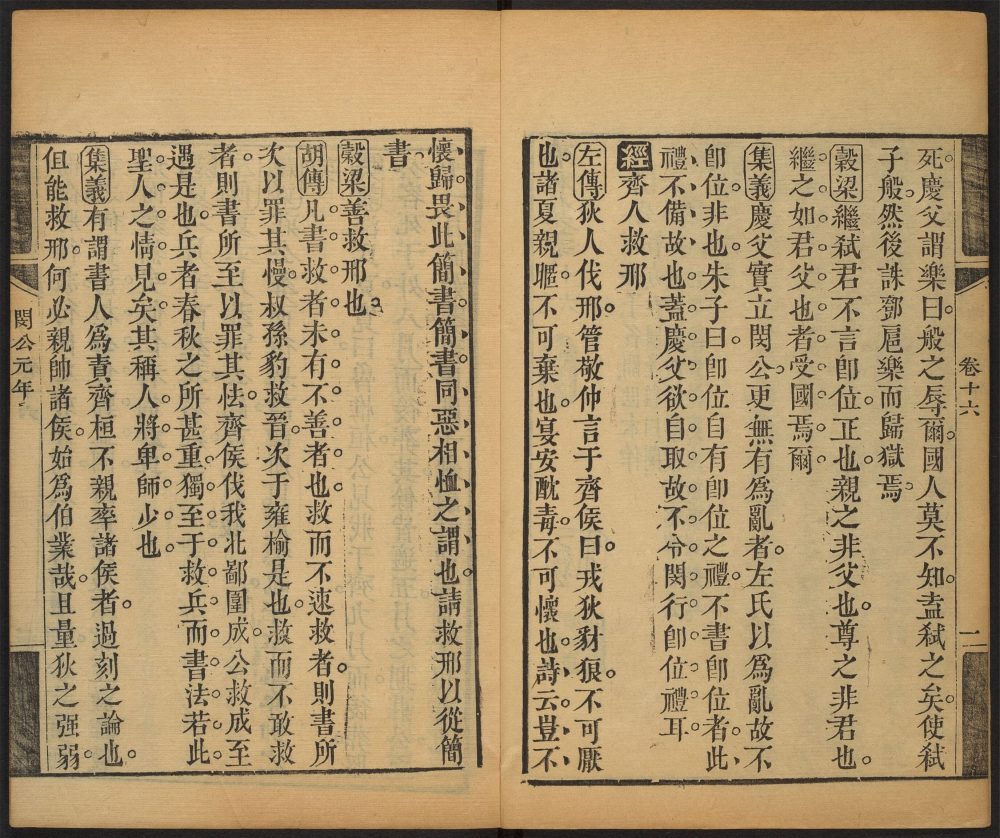 卷十六
二
死慶父謂樂曰般之辱爾國人莫不知盍弑之矣使弑
子般然後誅鄧扈樂而歸獄焉
穀梁繼弑君不言卽位正也親之非父也尊之非君也
繼之如君父也者受國焉爾
集義慶父實立閔公更無有爲亂者左氏以爲亂故不
卽位非也朱子曰卽位自有卽位之禮不書卽位者此
禮不備故也蓋慶父欲自取故不令閔行卽位禮耳
經齊人救邢
左傳狄人伐邢管敬仲言于齊侯曰戎狄豺狼不可厭
也諸夏親暱不可棄也宴安酖毒不可懷也詩云豈不
懷歸畏此簡書簡書同惡相恤之謂也請救邢以從簡
書
穀梁善救邢也
胡傳凡書救者未有不善者也救而不速救者則書所
次以罪其慢叔孫豹救晉次于雍榆是也救而不敢救
者則書所至以罪其怯齊侯伐我北鄙圍成公救成至
遇是也兵者春秋之所甚重獨至于救兵而書法若此
聖人之情見矣其稱人將卑師少也
集義有謂書人爲責齊桓不親率諸侯者過刻之論也
但能救邢何必親帥諸侯始爲伯業哉且量狄之强弱
閔公元年